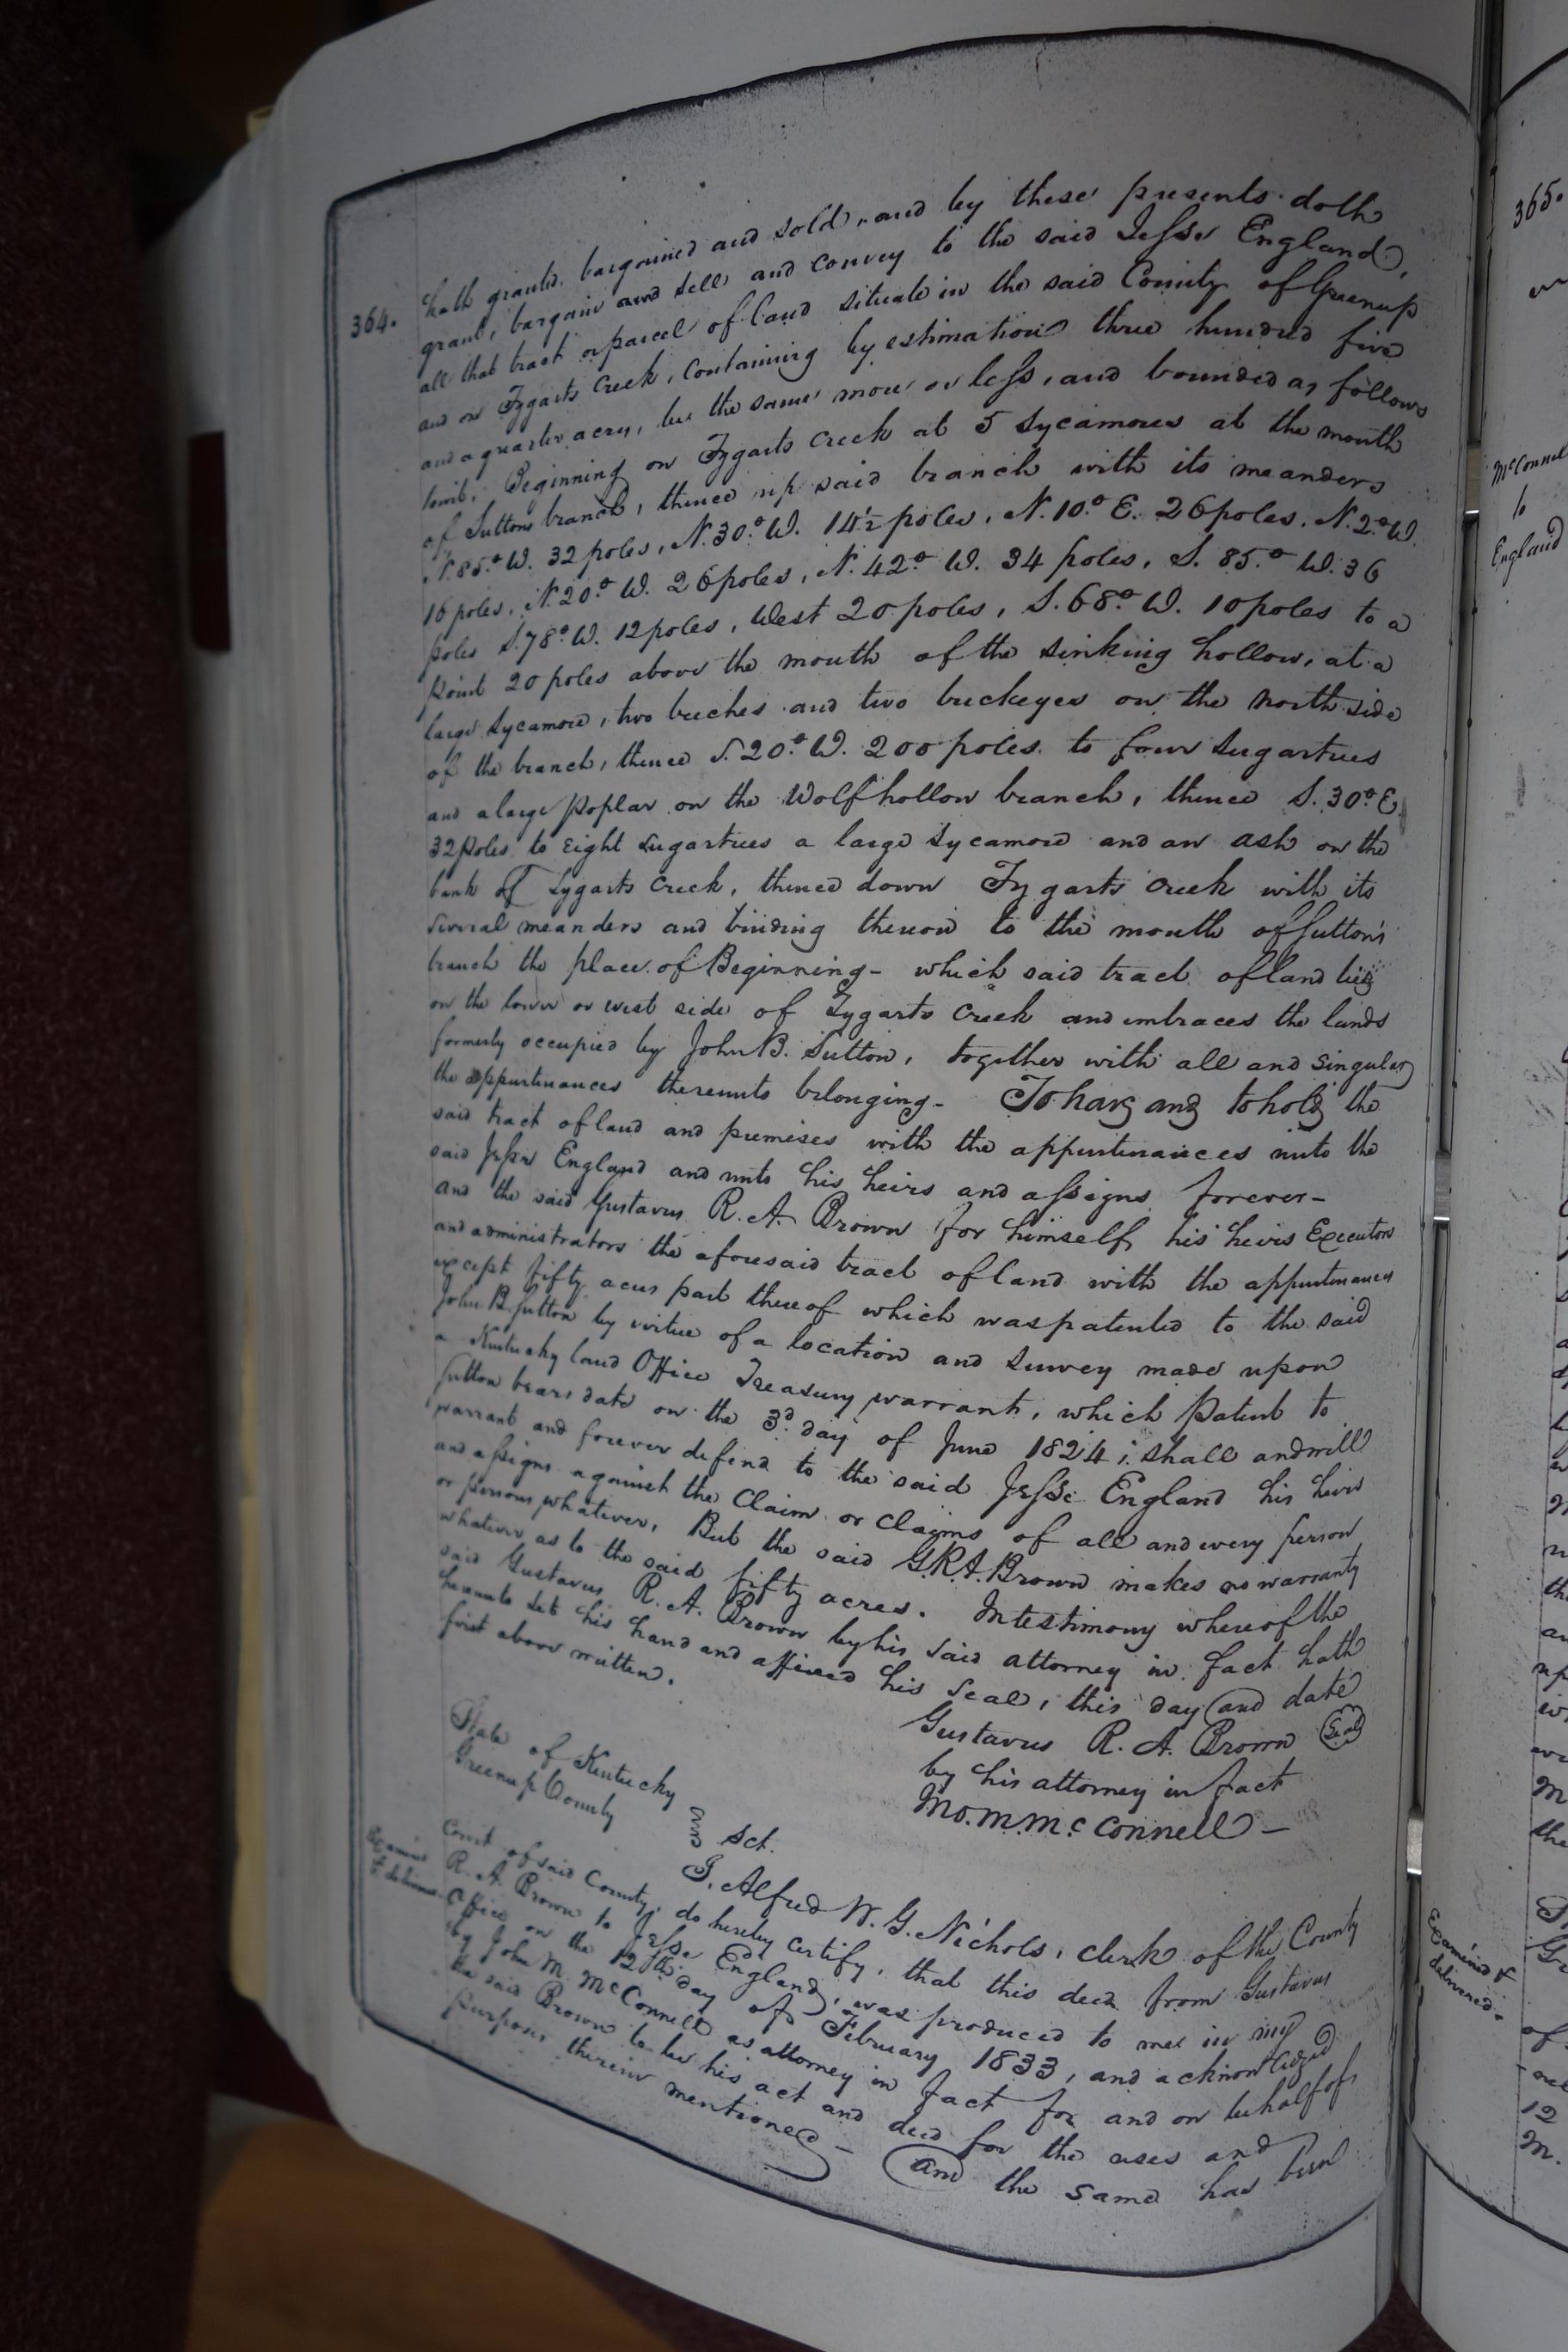 364.
hath granted. bargained and sold, and by these presents doth
grant, bargain and sell and convey to the said Jesse England,
all that tract or parcel of land situate in the said County of Greenup
and on Tygarts Creek, containing by estimation three hundred five
and a quarter acres, be the same more or less, and bounded as follows
towit, Beginning on Tygarts Creek at 5 Sycamores at the mouth
of Suttons branch, thence up said branch with its meanders
N. 85.° W. 32 poles, N. 30.° W. 14½ poles, N. 10.° E. 26 poles. N. 2.° W.
16 poles, N. 20.° W. 26 poles, N. 42° W. 34 poles, S. 85.° W. 36
poles S. 78° W. 12 poles, West 20 poles, S. 68° W. 10 poles to a
point 20 poles above the mouth of the sinking hollow, at a
large Sycamore, two beeches and two buckeyes on the north side
of the branch, thence S. 20.° W. 200 poles to four Sugartrees
and a large poplar on the Wolfhollow branch, thence S. 30° E.
32 Poles to Eight Sugartrees a large Sycamore and an ash on the
bank of Tygarts Creek, thence down Tygarts Creek with its
several meanders and binding thereon to the mouth of Sutton's
branch the place of Beginning - which said tract of land lies
on the lower or west side of Tygarts Creek and embraces the lands
formerly occupied by John B. Sutton, together with all and singular
the appurtenances thereunto belonging - To have and to hold the
said tract of land and premises with the appurtenances unto the
said Jesse England and unto his heirs and assigns forever -
and the said Gustavus R. A. Brown for himself, his heirs Executors
and administrators the aforesaid tract of land with the appurtenances
except fifty acres part thereof which was patented to the said
John B. Sutton by virtue of a location and Survey made upon
a Kentucky land Office Treasury warrant, which Patent to
Sutton bears date on the 3d. day of June 1824, shall and will
warrant and forever defend to the said Jesse England his heirs
and assigns against the Claim or claims of all and every person
or persons whatever, But the said G. R. A. Brown makes no warranty
whatever as to the said fifty acres. In testimony whereof the
said Gustavus R. A. Brown by his said attorney in fact hath
hereunto set his hand and affixed his seal, this day and date
first above written.
Gustavus R. A. Brown Seal
by his attorney in fact
Jno. M. McConnell -
State of Kentucky
Greenup County
Sct.
I, Alfred W. G. Nichols, clerk of the County
Court of said County, do hereby certify, that this deed from Gustavus
R. A. Brown to Jesse England, was produced to me in my
Office on the 12th day of February 1833, and acknowledged
by John M. McConnell as attorney in fact for and on behalf of
the said Brown to be his act and deed for the uses and
purposes therein mentioned - and the same has been
Examined
& delivered
365.
McConnel
to
England
Examined &
delivered.